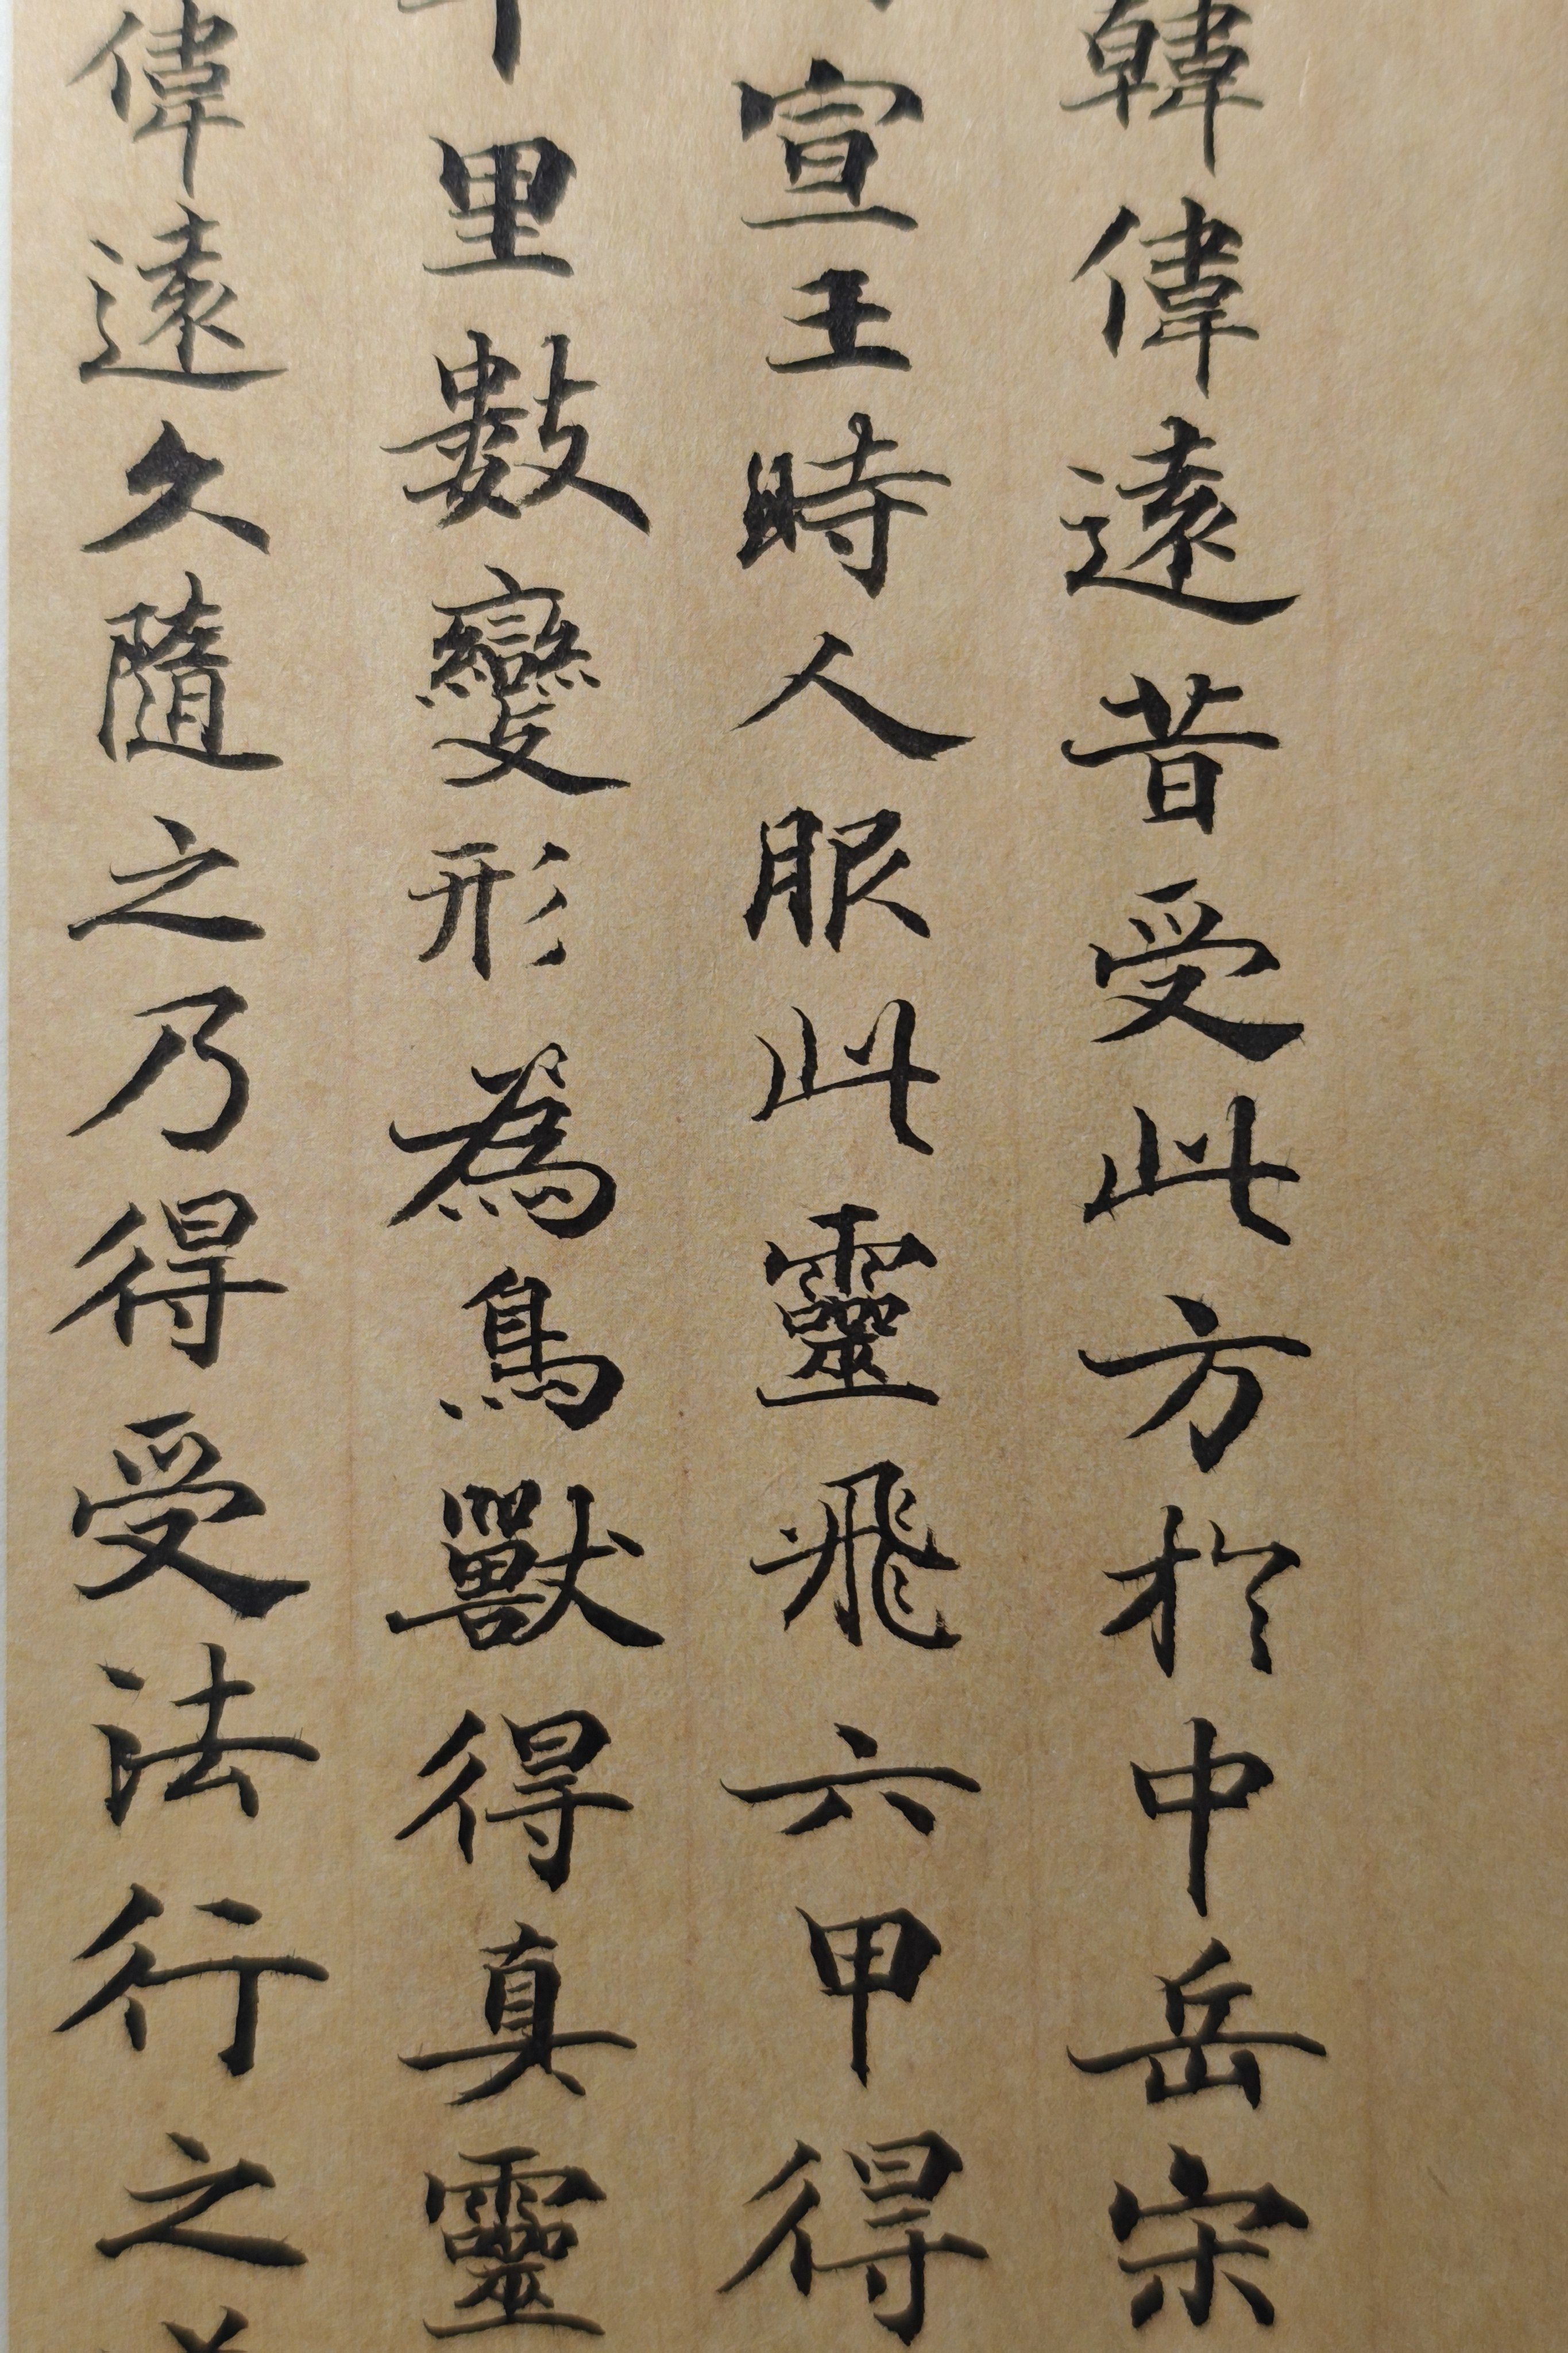 韓偉遠昔受此方於中岳宋
宣王時人服此靈飛六甲得
里數變形為鳥獸得真靈
偉遠久隨之乃得受法行之